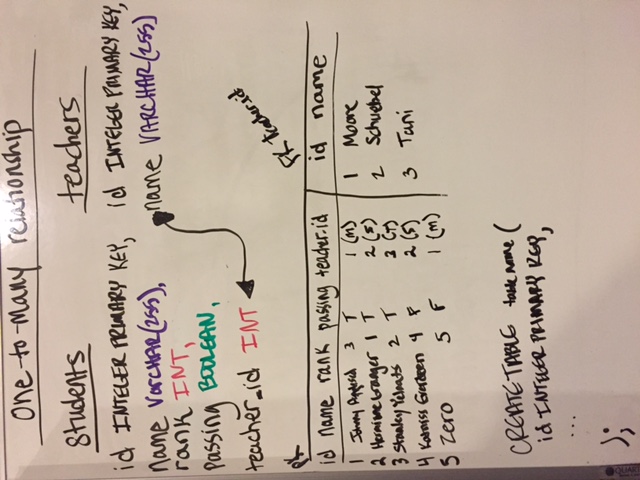 One-to-Many relationship
Students
id INTEGER PRIMARY KEY,
name VARCHAR(255),
rank INT,
passing BOOLEAN,
teacher_id INT
teachers
id INTEGER PRIMARY KEY,
name VARCHAR(255)
PK
id name rank passing teacher_id
1 Johnny Appleseed 3 T 1 (M)
2 Hermione Granger 1 T 2 (S)
3 Stanley Yelnats 2 T 3 (T)
4 Katniss Everdeen 4 F 2 (S)
5 Zero 5 F 1 (M)
FK teacher_id
id name
1 Moore
2 Schuebel
3 Tani
CREATE TABLE table name (
id INTEGER PRIMARY KEY,
...
);